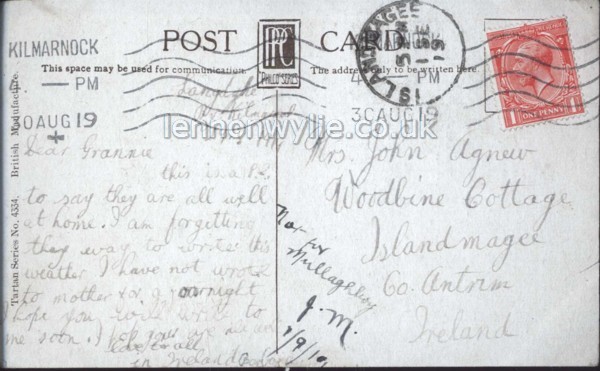 KILMARNOCK
— PM
30 AUG 19
POST CARD
PPC
PHILCO SERIES
This space may be used for communication.
The address only to be written here.
KILMARNOCK
PM
30 AUG 19
ISLANDMAGEE
SE
19
ONE PENNY
lennonwylie.co.uk
Tartan Series No. 4534. British Manufacture.
Dear Grannie
this is a P.C
to say they are all well
at home. I am forgetting
they way to write this
weather I have not wrote
to mother for a
I hope you will write to
me soon. I hope you are
love to all
in Ireland
Mrs. John Agnew
Woodbine Cottage
Islandmagee
Co. Antrim
Ireland
Mullaghboy
J. M.
1/9/19